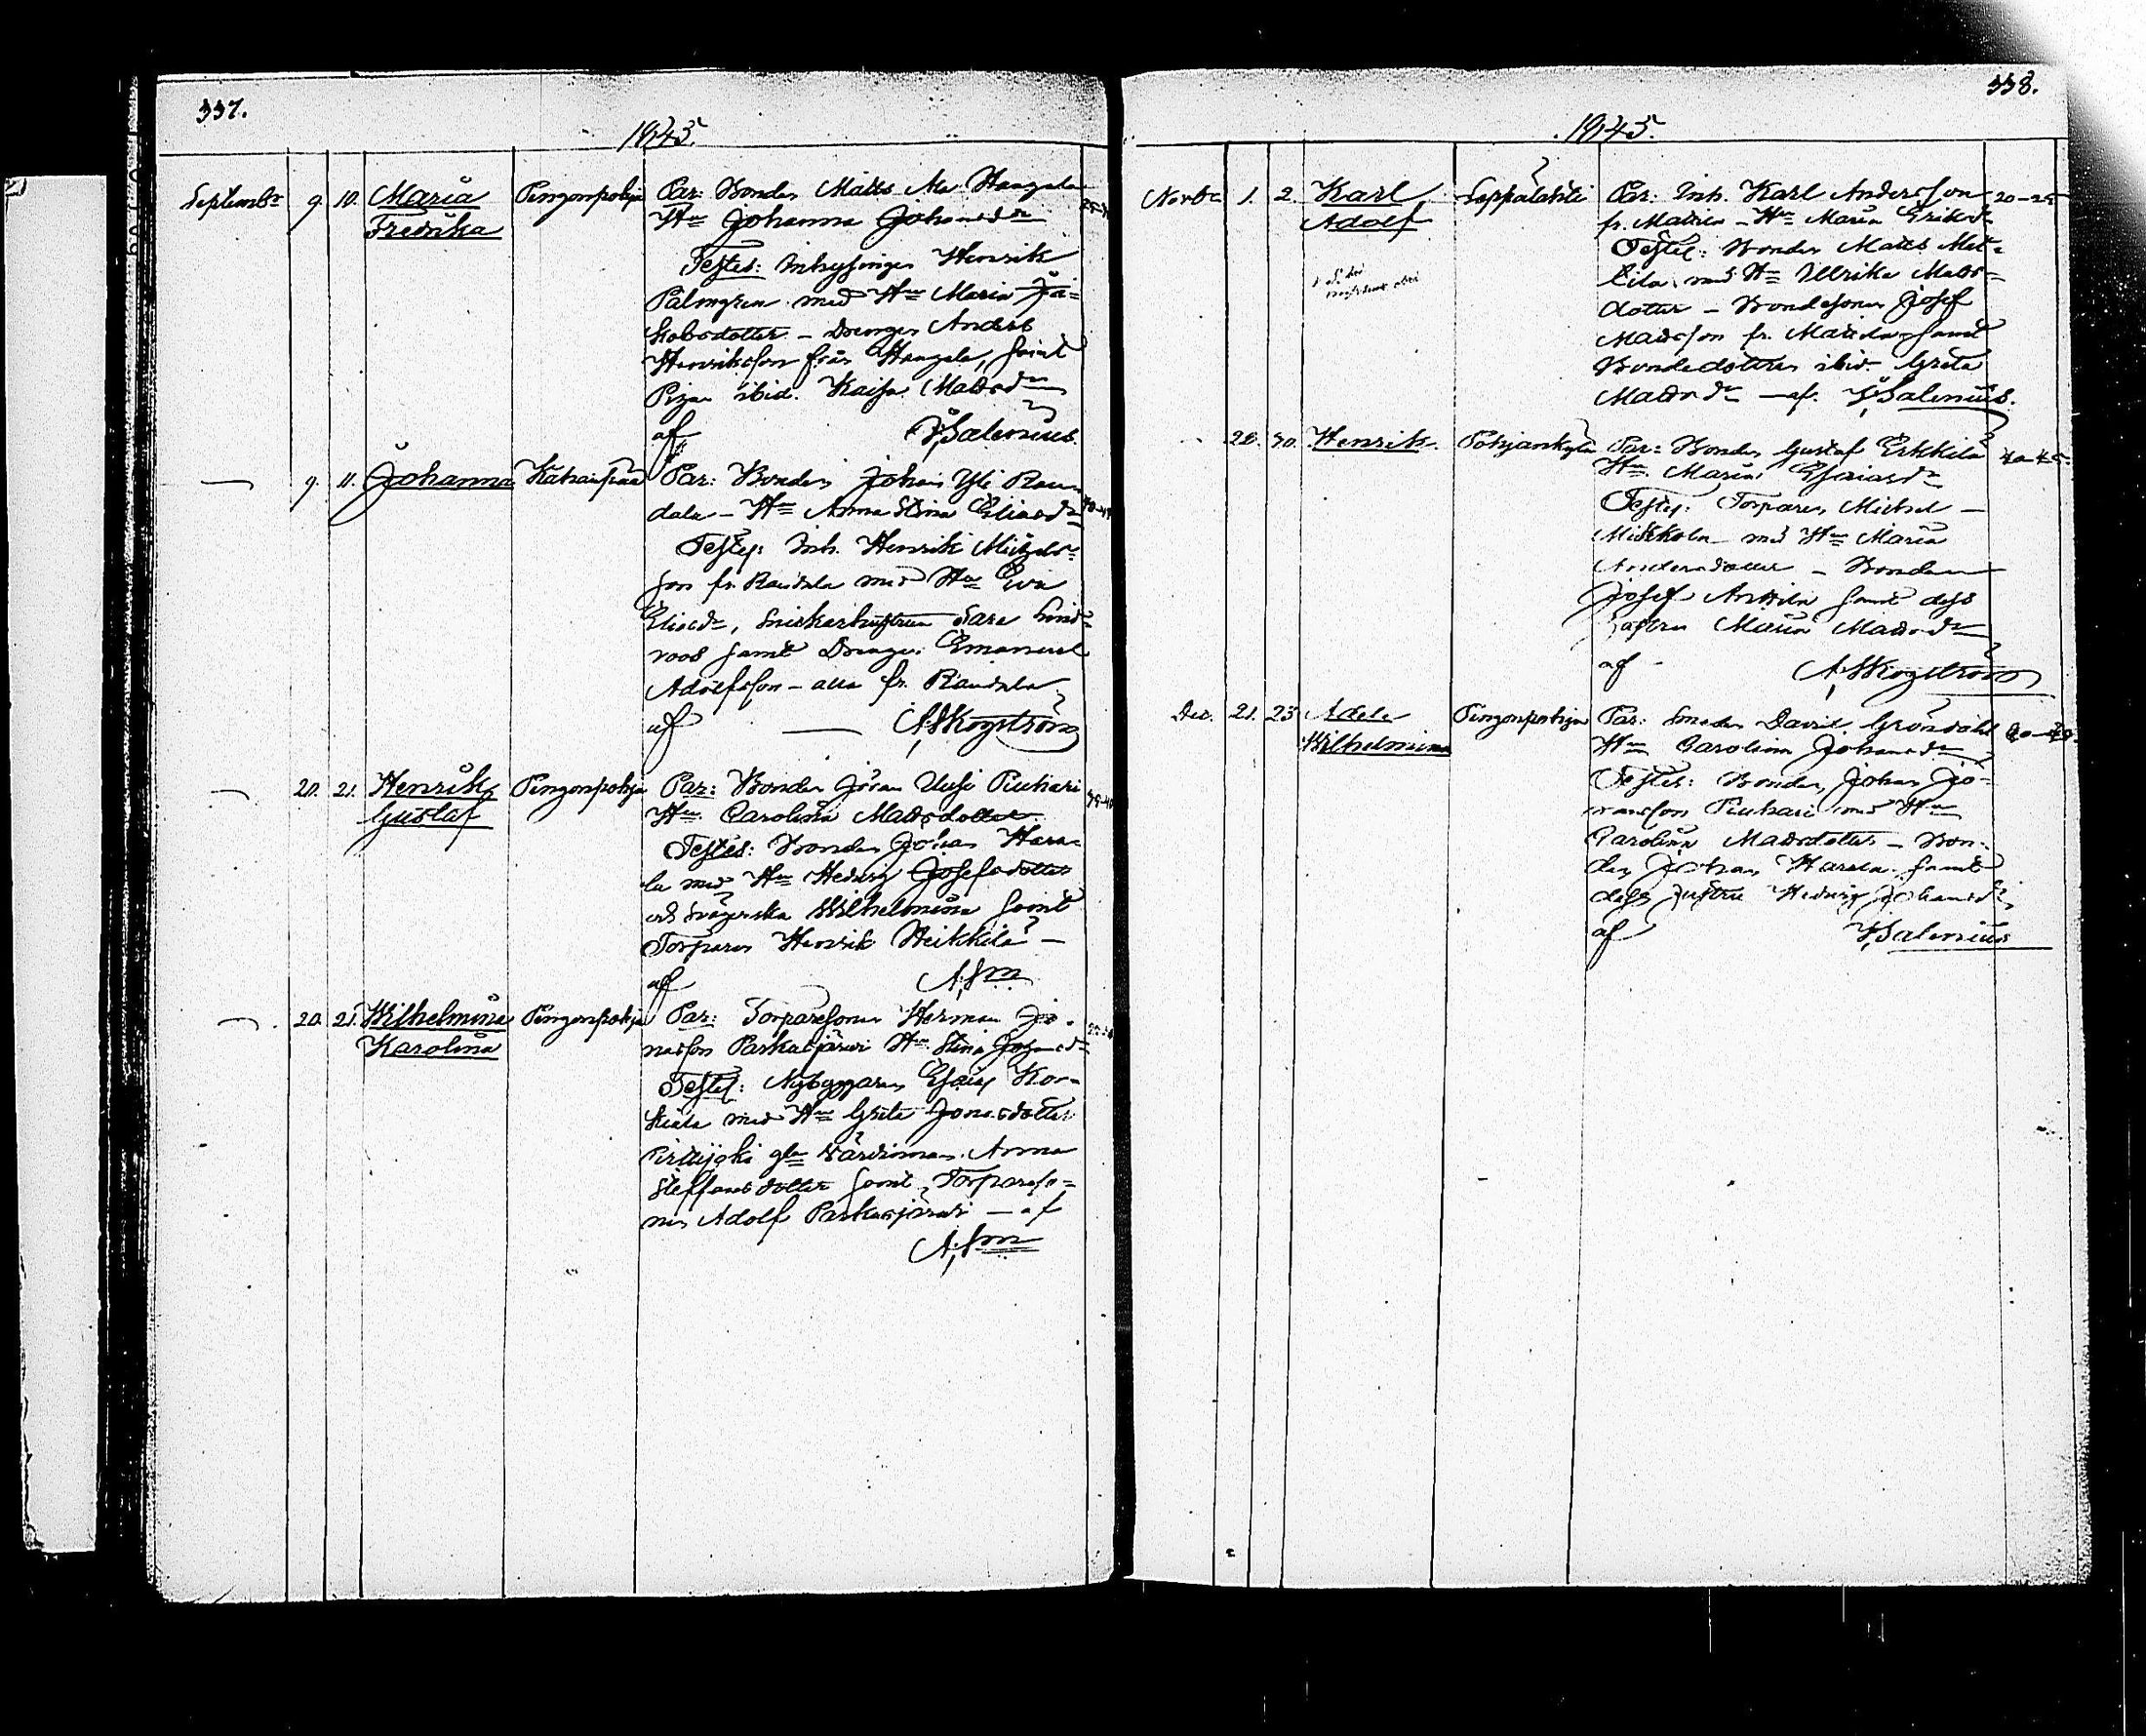 337.
1845.
Septembr 9. 10. Maria Pingonpohja Par: Bonden Matts Ala Haapala
Fredrika Hu Johanna Johansdr
Testes: Inhysingen Henrik
Palmgren med Hu Maria Ja=
kobsdotter – Drengen Anders
Henriksson från Haapala, samt
Pigan ibid. Kaisa Mattsdr
af Salenius.
— 9. 11. Johanna Par: Bonden Johan Yli Rau
dala – Hu Anna Stina Eliasdr
Testes: Inh. Henrik Michels=
son fr. Raudala med Hu Eva
Eliasdr, Snickarhustrun Sara Lind=
roos samt Drengen Emanuel
Adolfsson – alla fr. Raudala
af — A. Skogström
— 20. 21. Henrik Pingonpohja Par: Bonden Göran Uusi Piuhari
Gustaf Hu Carolina Mattsdotter
Testes: Bonden Johan Hara=
la med Hu Hedvig Josefsdotter
och Svägerska Wilhelmina samt
Torparen Henrik Heikkilä –
af A. Sm
— 20. 21. Wilhelmina Pingonpohja Par: Torparesonen Herman Jo=
Karolina nasson Parkasjärwi Hu Stina
Testes: Nybyggaren Esaias Kor=
med Hu Greta Jonasdotter
gla Värdinnan Anna
Steffansdotter samt Torpareso=
nen Adolf Parkasjärwi – af
A. Sm
338.
1845.
Novbr 1. 2. Karl Leppälahti Par: Inh. Karl Andersson 20–25
Adolf fr. Mattila – Hu Maria Eriksdr
Testes: Bonden Matts Mat=
tila med Hu Ullrika Matts=
dotter – Bondesonen Josef
Mattsson fr. Mattila samt
Bondedottren ibid. Greta
Mattsdr – af. Salenius.
28. 30. Henrik Pohjankylä Par: Bonden Gustaf Erkkilä
Hu Maria Esaiasdr
Testes: Torparen Michel –
med Hu Maria
Andersdotter – Bonden
Josef Anttila samt dess
hustru Maria Mattsdr
af – A. Skogström
Dec. 21. 25 Adela Pingonpohja Par: Smeden David Gröndahl
Wilhelmina Hu Carolina Johansdr
Testes: Bonden Johan Gö=
ransson Piuhari med Hu
Carolina Mattsdotter – Bon=
den Johan Harala samt
dess hustru Hedvig
af Salenius